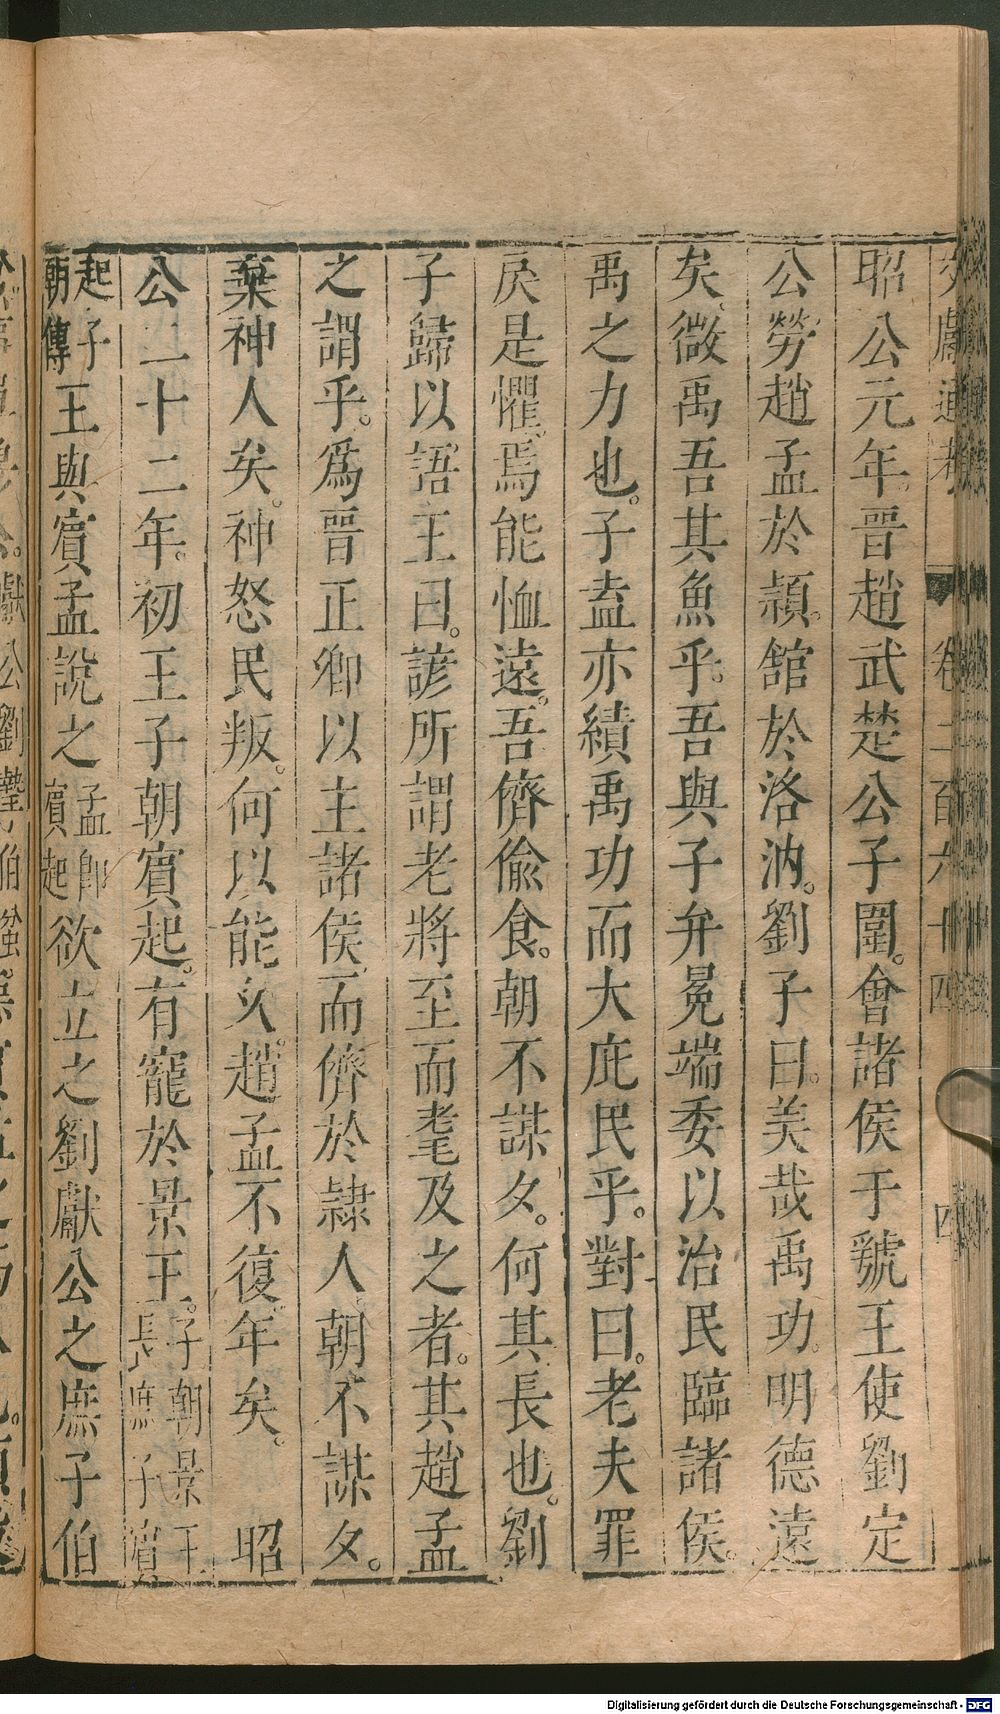 文獻通考 卷二百六十四 四
昭公元年。晉趙武楚公子圍。會諸侯于虢王使劉定
公勞趙孟於潁。館於洛汭。劉子曰。美哉禹功。明德遠
矣。微禹吾其魚乎。吾與子弁冕端委以治民臨諸侯。
禹之力也。子盍亦績禹功而大庇民乎。對曰。老夫罪
戾是懼。焉能恤遠。吾儕偷食。朝不謀夕。何其長也。劉
子歸以語王曰。諺所謂老將至而耄及之者。其趙孟
之謂乎。爲晉正卿以主諸侯而儕於隷人朝不謀夕。
棄神人矣。神怒民叛。何以能久。趙孟不復年矣。 昭
公二十二年。初王子朝賔起。有寵於景王。子朝景王長庶子賔
起子朝傅王與賔孟說之孟卽賔起欲立之劉獻公之庶子伯
Digitalisierung gefördert durch die Deutsche Forschungsgemeinschaft - DFG